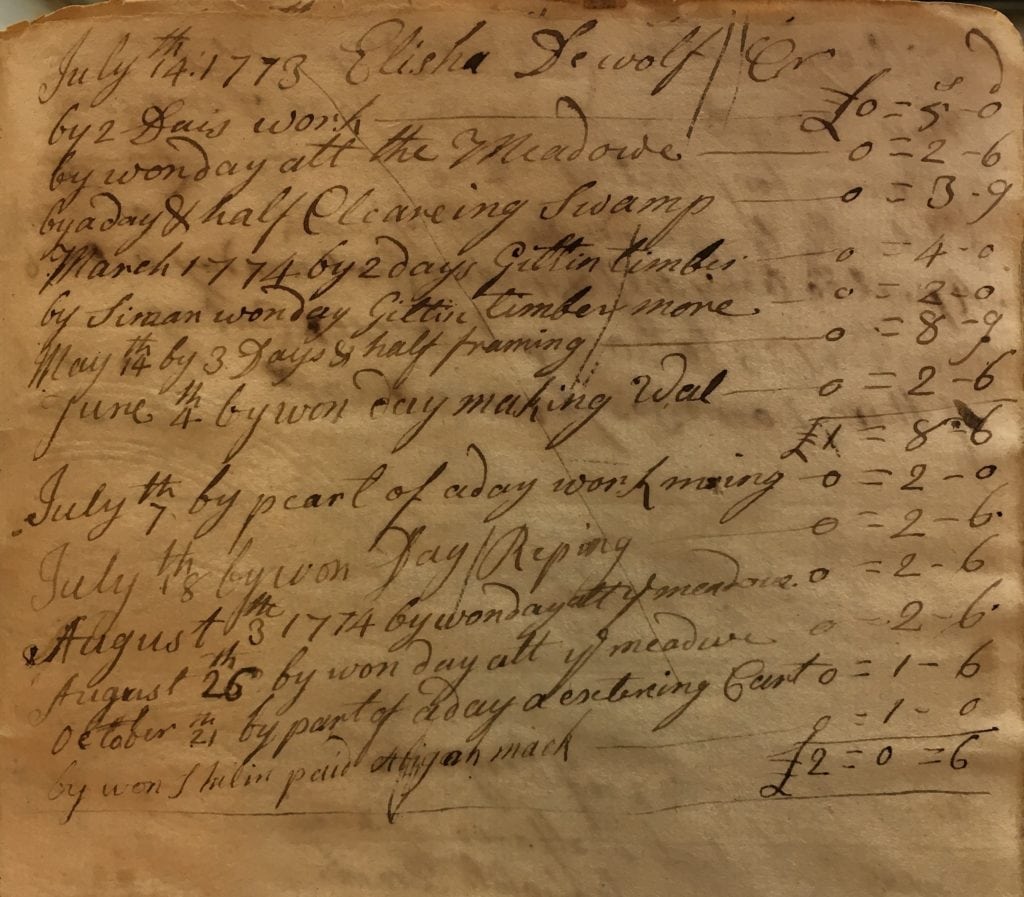 July 14th 1773 Elisha Dewolf // Cr
by 2 Dais work £0=5-0
by wonday att the Meadowe 0=2-6
by a day & half Cleareing Swamp 0=3-9
March 1774 by 2 days Gittin timber 0=4-0
by Siman wonday Gittin timber more 0=2-0
May 14th by 3 Days & half framing 0=8-9
June 4th by won day making Wal 0=2-6
£1=8-6
July 7th by peart of a day work moing 0=2-0
July 18th by won Day Reping 0-2-6
August 3th 1774 by wonday att ye meadow 0=2-6
August 26th by won day att ye meadwe 0-2-6
October 21th by part of a day a exetering Cart 0=1-6
by won Shilin paid Abijah mack 0=1-0
£2=0=6